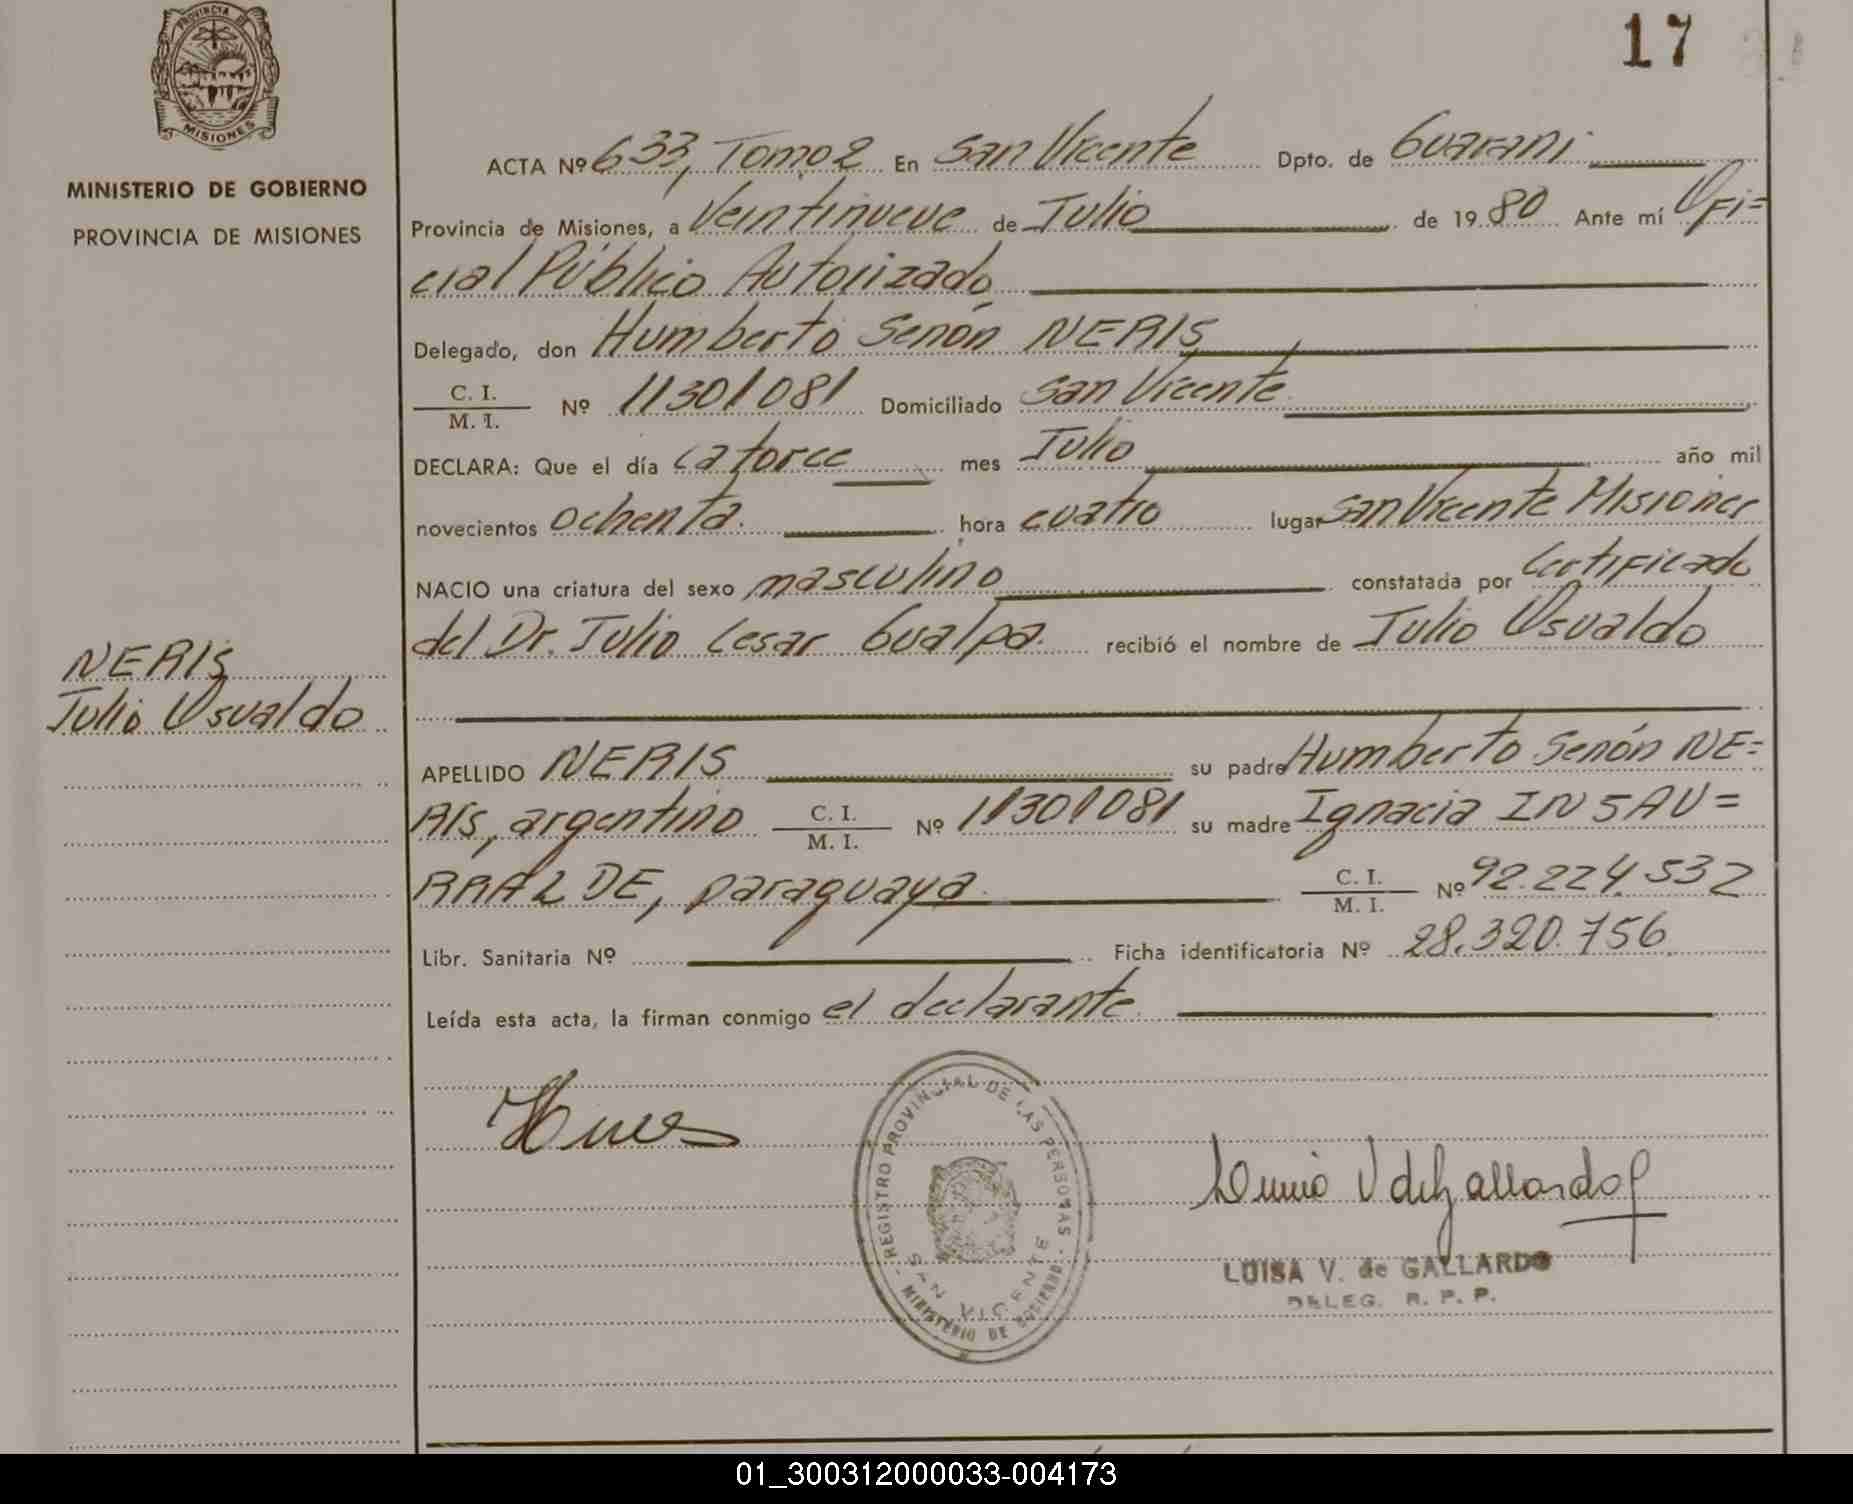 17
PROVINCIA DE
MISIONES
MINISTERIO DE GOBIERNO
PROVINCIA DE MISIONES
ACTA Nº 633, Tomo 2 En San Vicente Dpto. de Guarani
Provincia de Misiones, a Veintinueve de Julio de 1980 Ante mí Ofi=
cial Público Autorizado
Delegado, don Humberto Senón NERIS
C. I.
M. I. Nº 11301081 Domiciliado San Vicente
DECLARA: Que el día catorce mes Julio año mil
novecientos ochenta. hora cuatro lugar San Vicente Misiones
NACIO una criatura del sexo masculino constatada por Certificado
del Dr. Julio Cesar Gualpa. recibió el nombre de Julio Osvaldo
NERIS
Julio Osvaldo
APELLIDO NERIS su padre Humberto Senón NE=
RIS, argentino C. I.
M. I. Nº 11301081 su madre Ignacia INSAU=
RRALDE, paraguaya. C. I.
M. I. Nº 92.224.532
Libr. Sanitaria Nº Ficha identificatoria Nº 28.320.756
Leída esta acta, la firman conmigo el declarante.
REGISTRO PROVINCIAL DE LAS PERSONAS
SAN VICENTE
MINISTERIO DE GOBIERNO
LUISA V. de GALLARDO
DELEG. R. P. P.
01_300312000033-004173